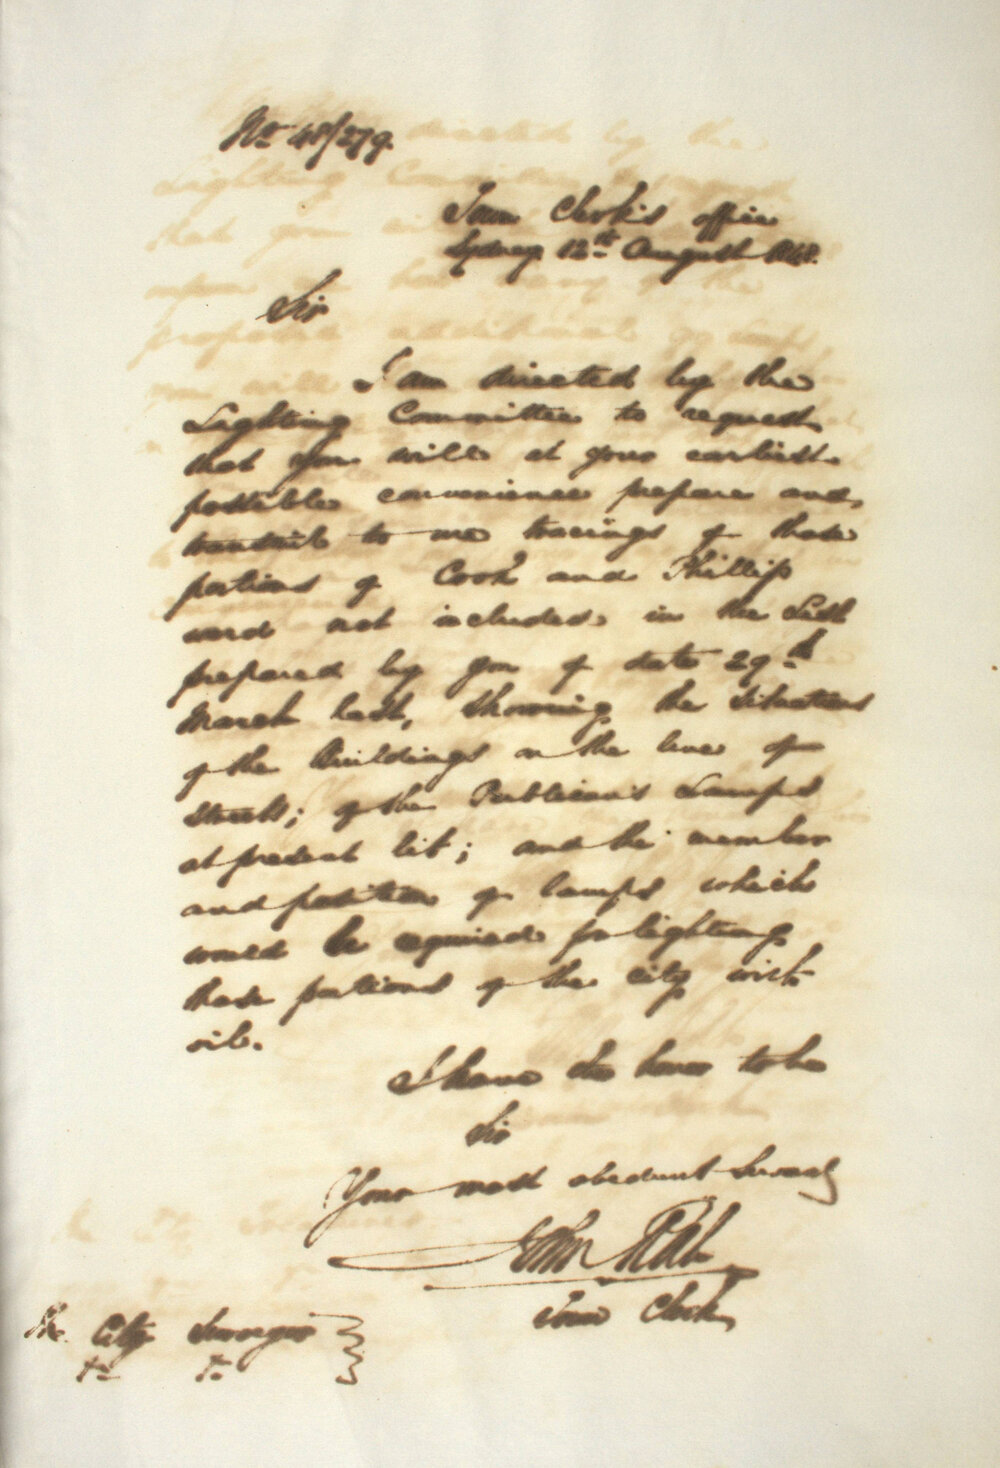 No 48/279.
Town Clerk's office
Sydney 12th August 1848.
Sir
I am directed by the
Lighting Committee to request
that you will at your earliest
possible convenience prepare and
transmit to me tracings of those
portions of Cook and Phillip
ward not included in the List
prepared by you of date 29th
March last, showing the situations
of the Buildings on the line of
Streets; of the Publican's Lamps
at present lit; and the number
and position of lamps which
would be required for lighting
those portions of the city with
oil.
I have the honor to be
Sir
Your most obedient Servant
John
Town Clerk
The City Surveyor